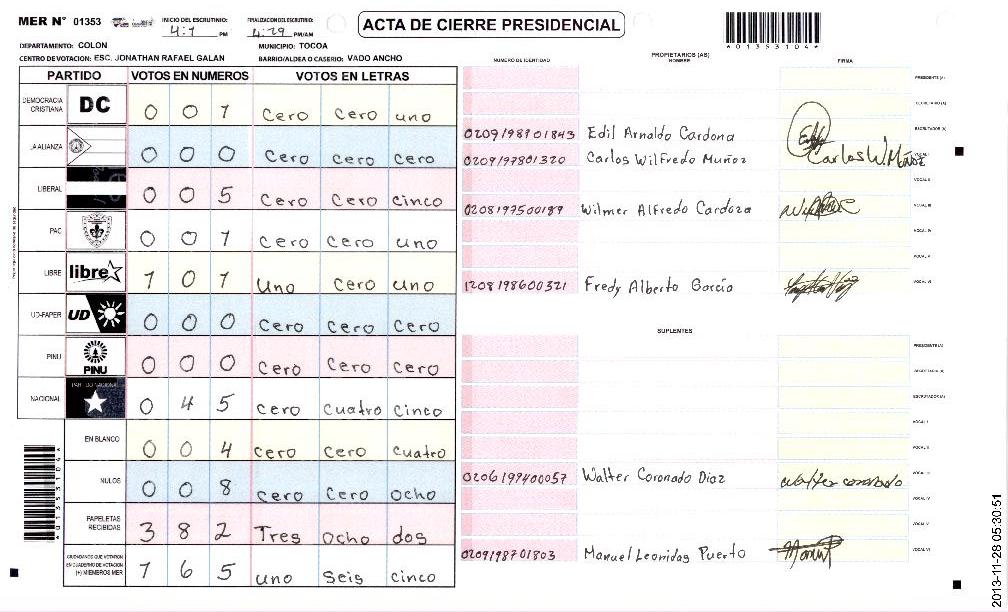 MER N° 01353
INICIO DEL ESCRUTINIO:
4:1 PM
FINALIZACION DEL ESCRUTINIO:
4:29 PM/AM
ACTA DE CIERRE PRESIDENCIAL
*01353104*
DEPARTAMENTO: COLON
MUNICIPIO: TOCOA
CENTRO DE VOTACION: ESC. JONATHAN RAFAEL GALAN
BARRIO/ALDEA O CASERIO: VADO ANCHO
PARTIDO VOTOS EN NUMEROS VOTOS EN LETRAS
DEMOCRACIA CRISTIANA DC 0 0 1 Cero Cero uno
LA ALIANZA 0 0 0 Cero Cero Cero
LIBERAL 0 0 5 Cero Cero cinco
PAC 0 0 1 Cero Cero uno
LIBRE libre 1 0 1 Uno Cero uno
UD-FAPER UD 0 0 0 Cero Cero Cero
PINU PINU 0 0 0 Cero Cero Cero
NACIONAL PARTIDO NACIONAL 0 4 5 cero cuatro cinco
EN BLANCO 0 0 4 cero cero cuatro
NULOS 0 0 8 cero Cero ocho
PAPELETAS RECIBIDAS 3 8 2 Tres ocho dos
CIUDADANOS QUE VOTARON EN CUADERNO DE VOTACION (+) MIEMBROS MER 1 6 5 uno seis cinco
*01353104*
NUMERO DE IDENTIDAD
PROPIETARIOS (AS)
NOMBRE
FIRMA
PRESIDENTE (A)
SECRETARIO (A)
0209198901843 Edil Arnaldo Cardona ESCRUTADOR (A)
0209197801320 Carlos Wilfredo Muñoz Carlos W. Muñoz VOCAL I
VOCAL II
0208197500189 Wilmer Alfredo Cardoza VOCAL III
VOCAL IV
VOCAL V
1208198600321 Fredy Alberto Garcia VOCAL VI
SUPLENTES
PRESIDENTE (A)
SECRETARIO (A)
ESCRUTADOR (A)
VOCAL I
VOCAL II
0206199400057 Walter Coronado Diaz walter coronado VOCAL III
VOCAL IV
VOCAL V
0209198701803 Manuel Leonidas Puerto VOCAL VI
2013-11-28 05:30:51